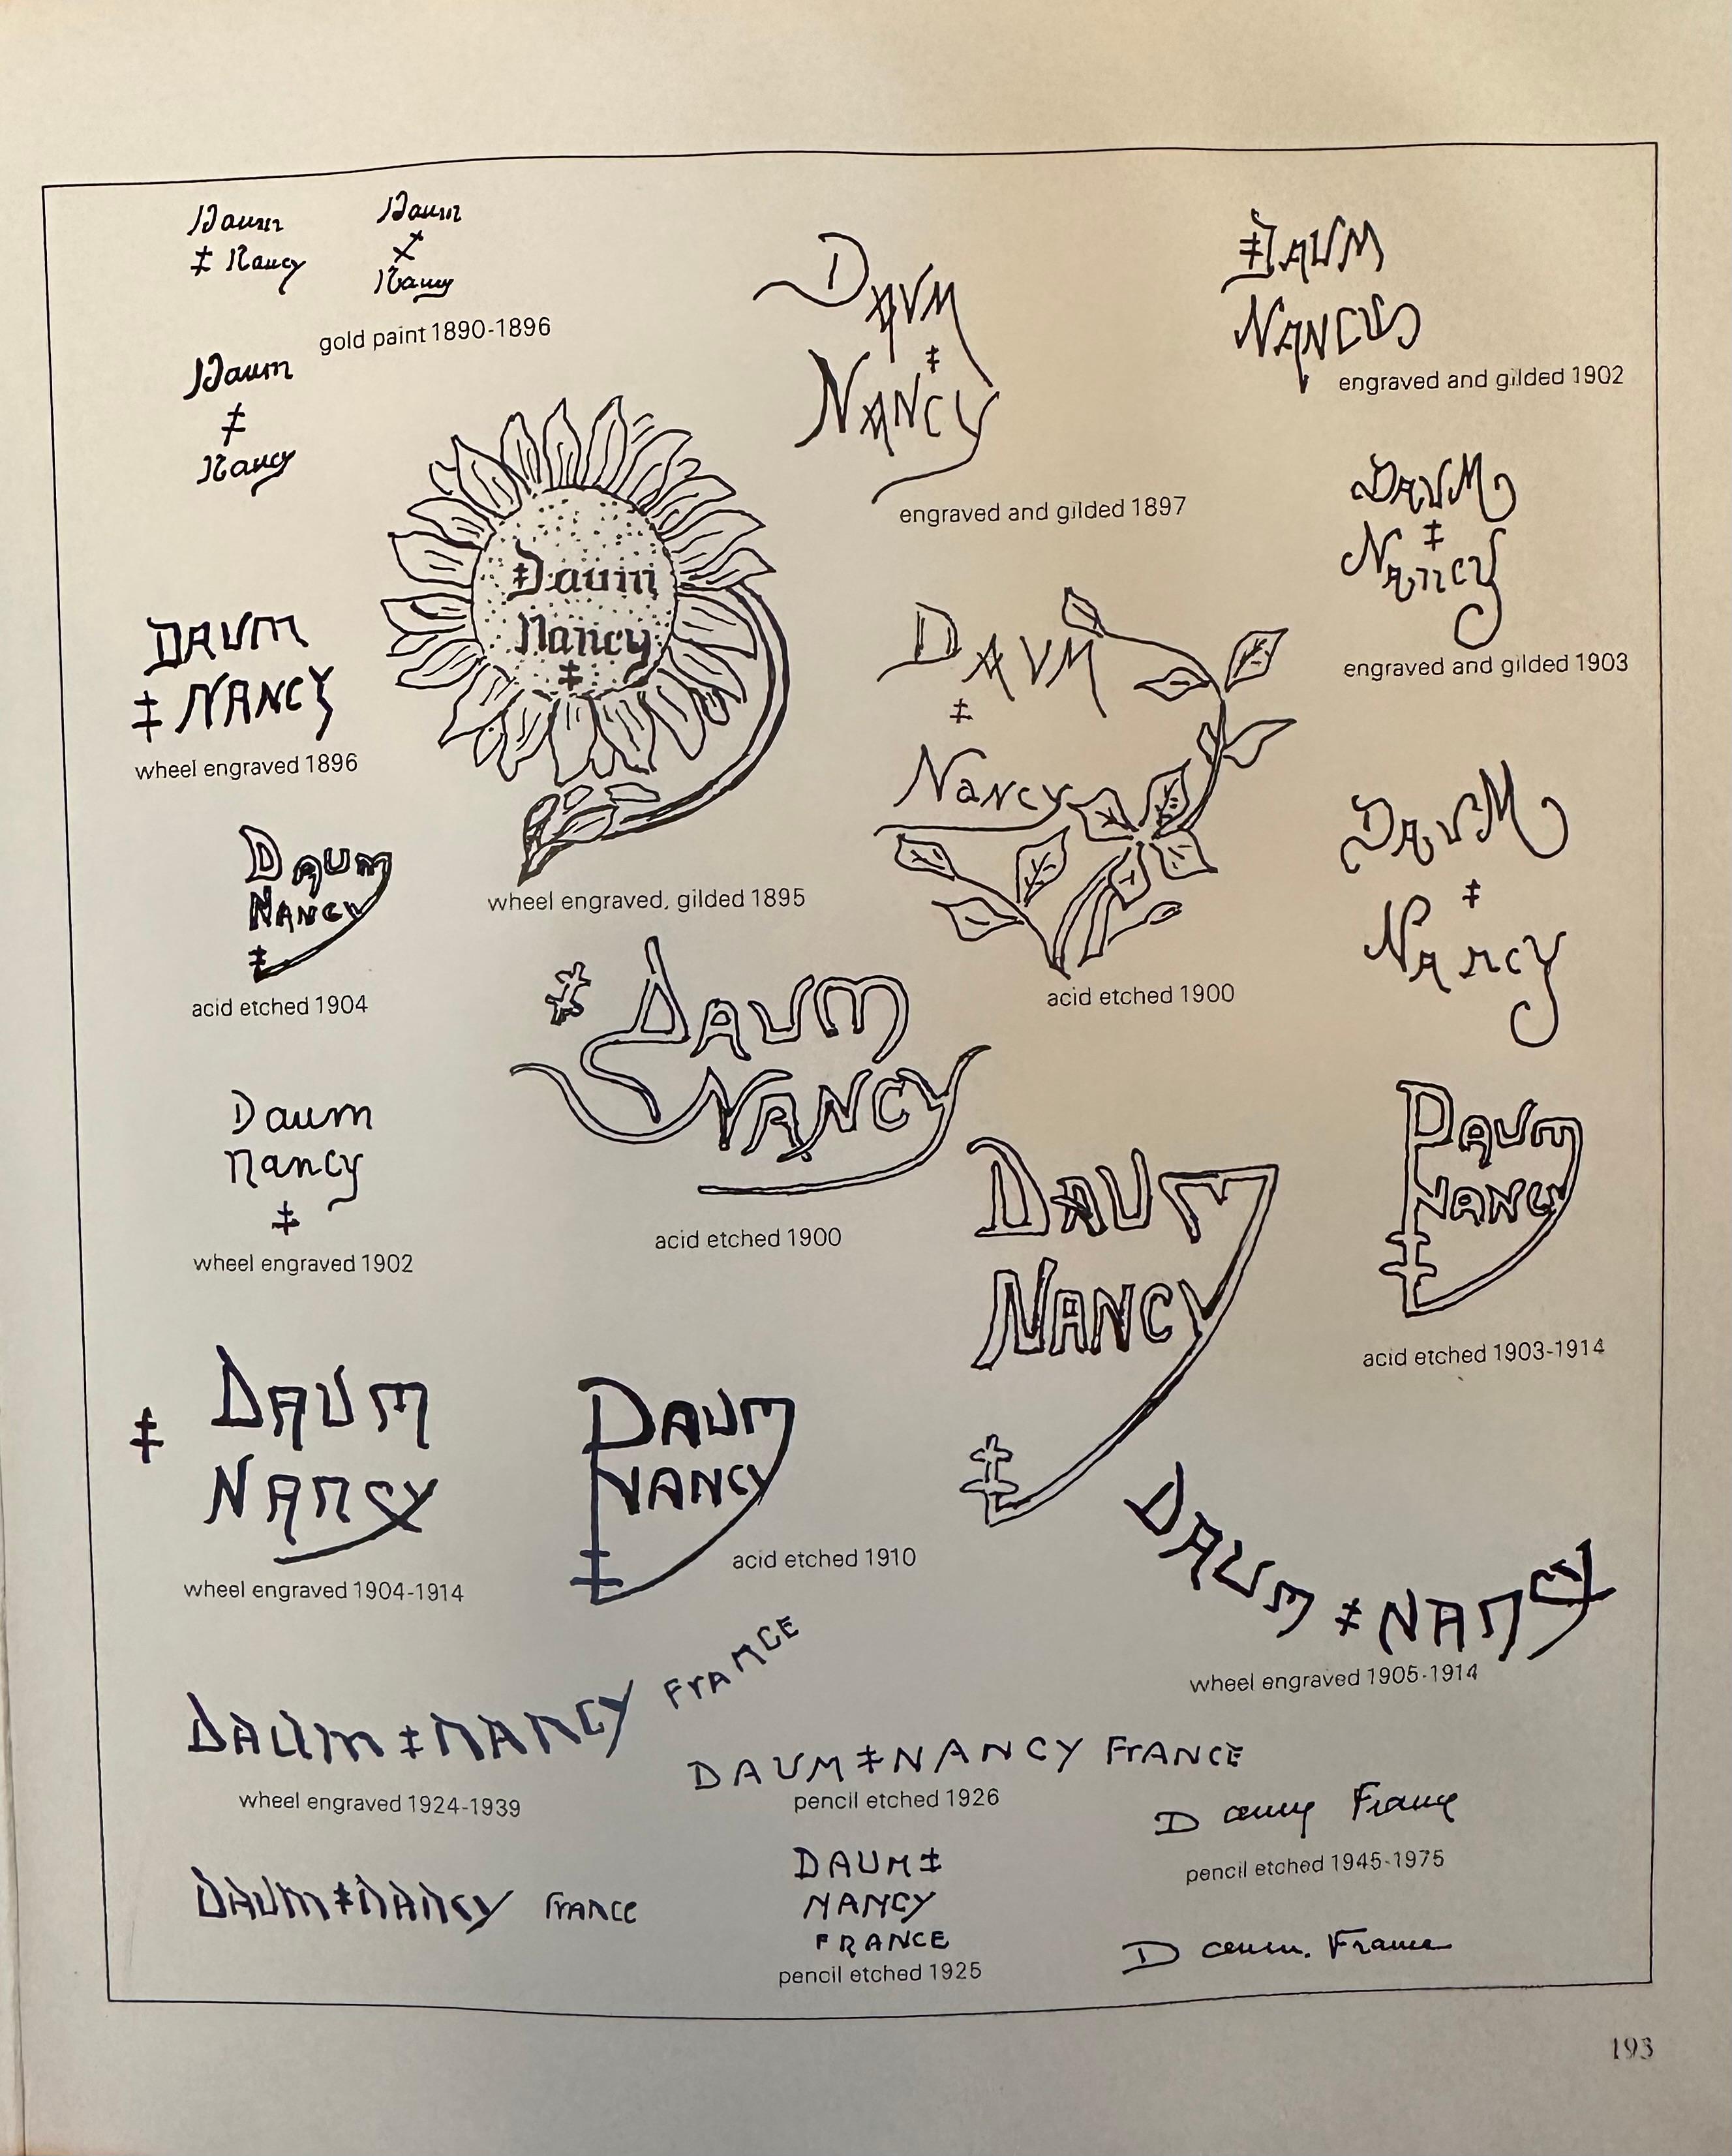 Daum
‡ Nancy
Daum
‡
Nancy
gold paint 1890-1896
Daum
‡
Nancy
DAUM
‡
NANCY
engraved and gilded 1897
‡DAUM
engraved and gilded 1902
Daum
Nancy
‡
wheel engraved, gilded 1895
DAUM
‡
Nancy
engraved and gilded 1903
DAUM
‡ NANCY
wheel engraved 1896
DAUM
‡
Nancy
acid etched 1900
DAUM
‡
Nancy
Daum
NANCY
‡
acid etched 1904
‡ DAUM
NANCY
acid etched 1900
Daum
nancy
‡
wheel engraved 1902
DAUM
NANCY
‡
DAUM
NANCY
‡
acid etched 1903-1914
‡ DAUM
NANCY
wheel engraved 1904-1914
DAUM
NANCY
‡
acid etched 1910
DAUM ‡ NANCY
wheel engraved 1905-1914
DAUM ‡ NANCY FrANCE
wheel engraved 1924-1939
DAUM ‡ NANCY FrANCE
pencil etched 1926
D France
pencil etched 1945-1975
DAUM ‡ NANCY France
DAUM ‡
NANCY
FRANCE
pencil etched 1925
Daum. France
193